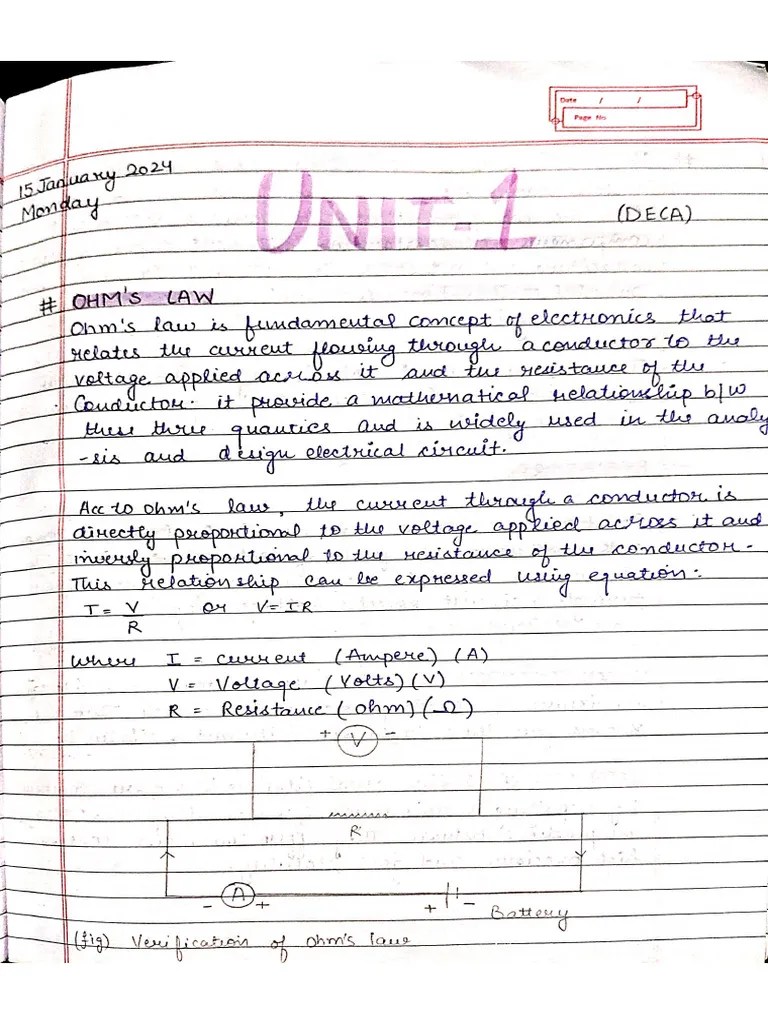 Date / /
Page No
15 January 2024
Monday
UNIT-1
(DECA)
# OHM'S LAW
Ohm's law is fundamental concept of electronics that
relates the current flowing through a conductor to the
voltage applied across it and the resistance of the
Conductor. it provide a mathematical relationship b/w
these three quantics and is widely used in the analy
-sis and design electrical circuit.
Acc to ohm's law, the current through a conductor is
directly proportional to the voltage applied across it and
inversly proportional to the resistance of the conductor.
This relationship can be expressed using equation:
I = V/R or V=IR
Where I = current (Ampere) (A)
V = Voltage (Volts) (V)
R = Resistance (ohm) (Ω)
+ V -
R
- A + + - Battery
(fig) Verification of ohm's law